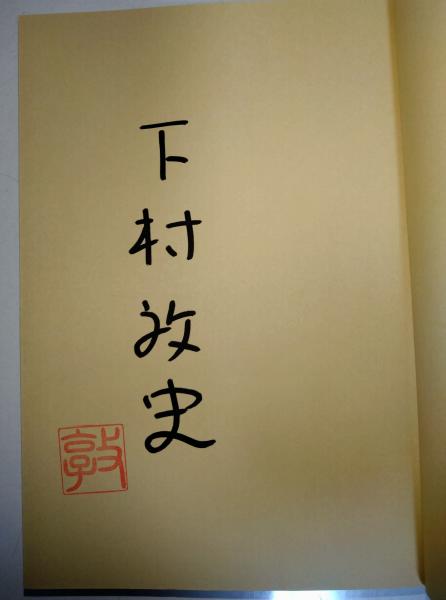 下村敦史
敦